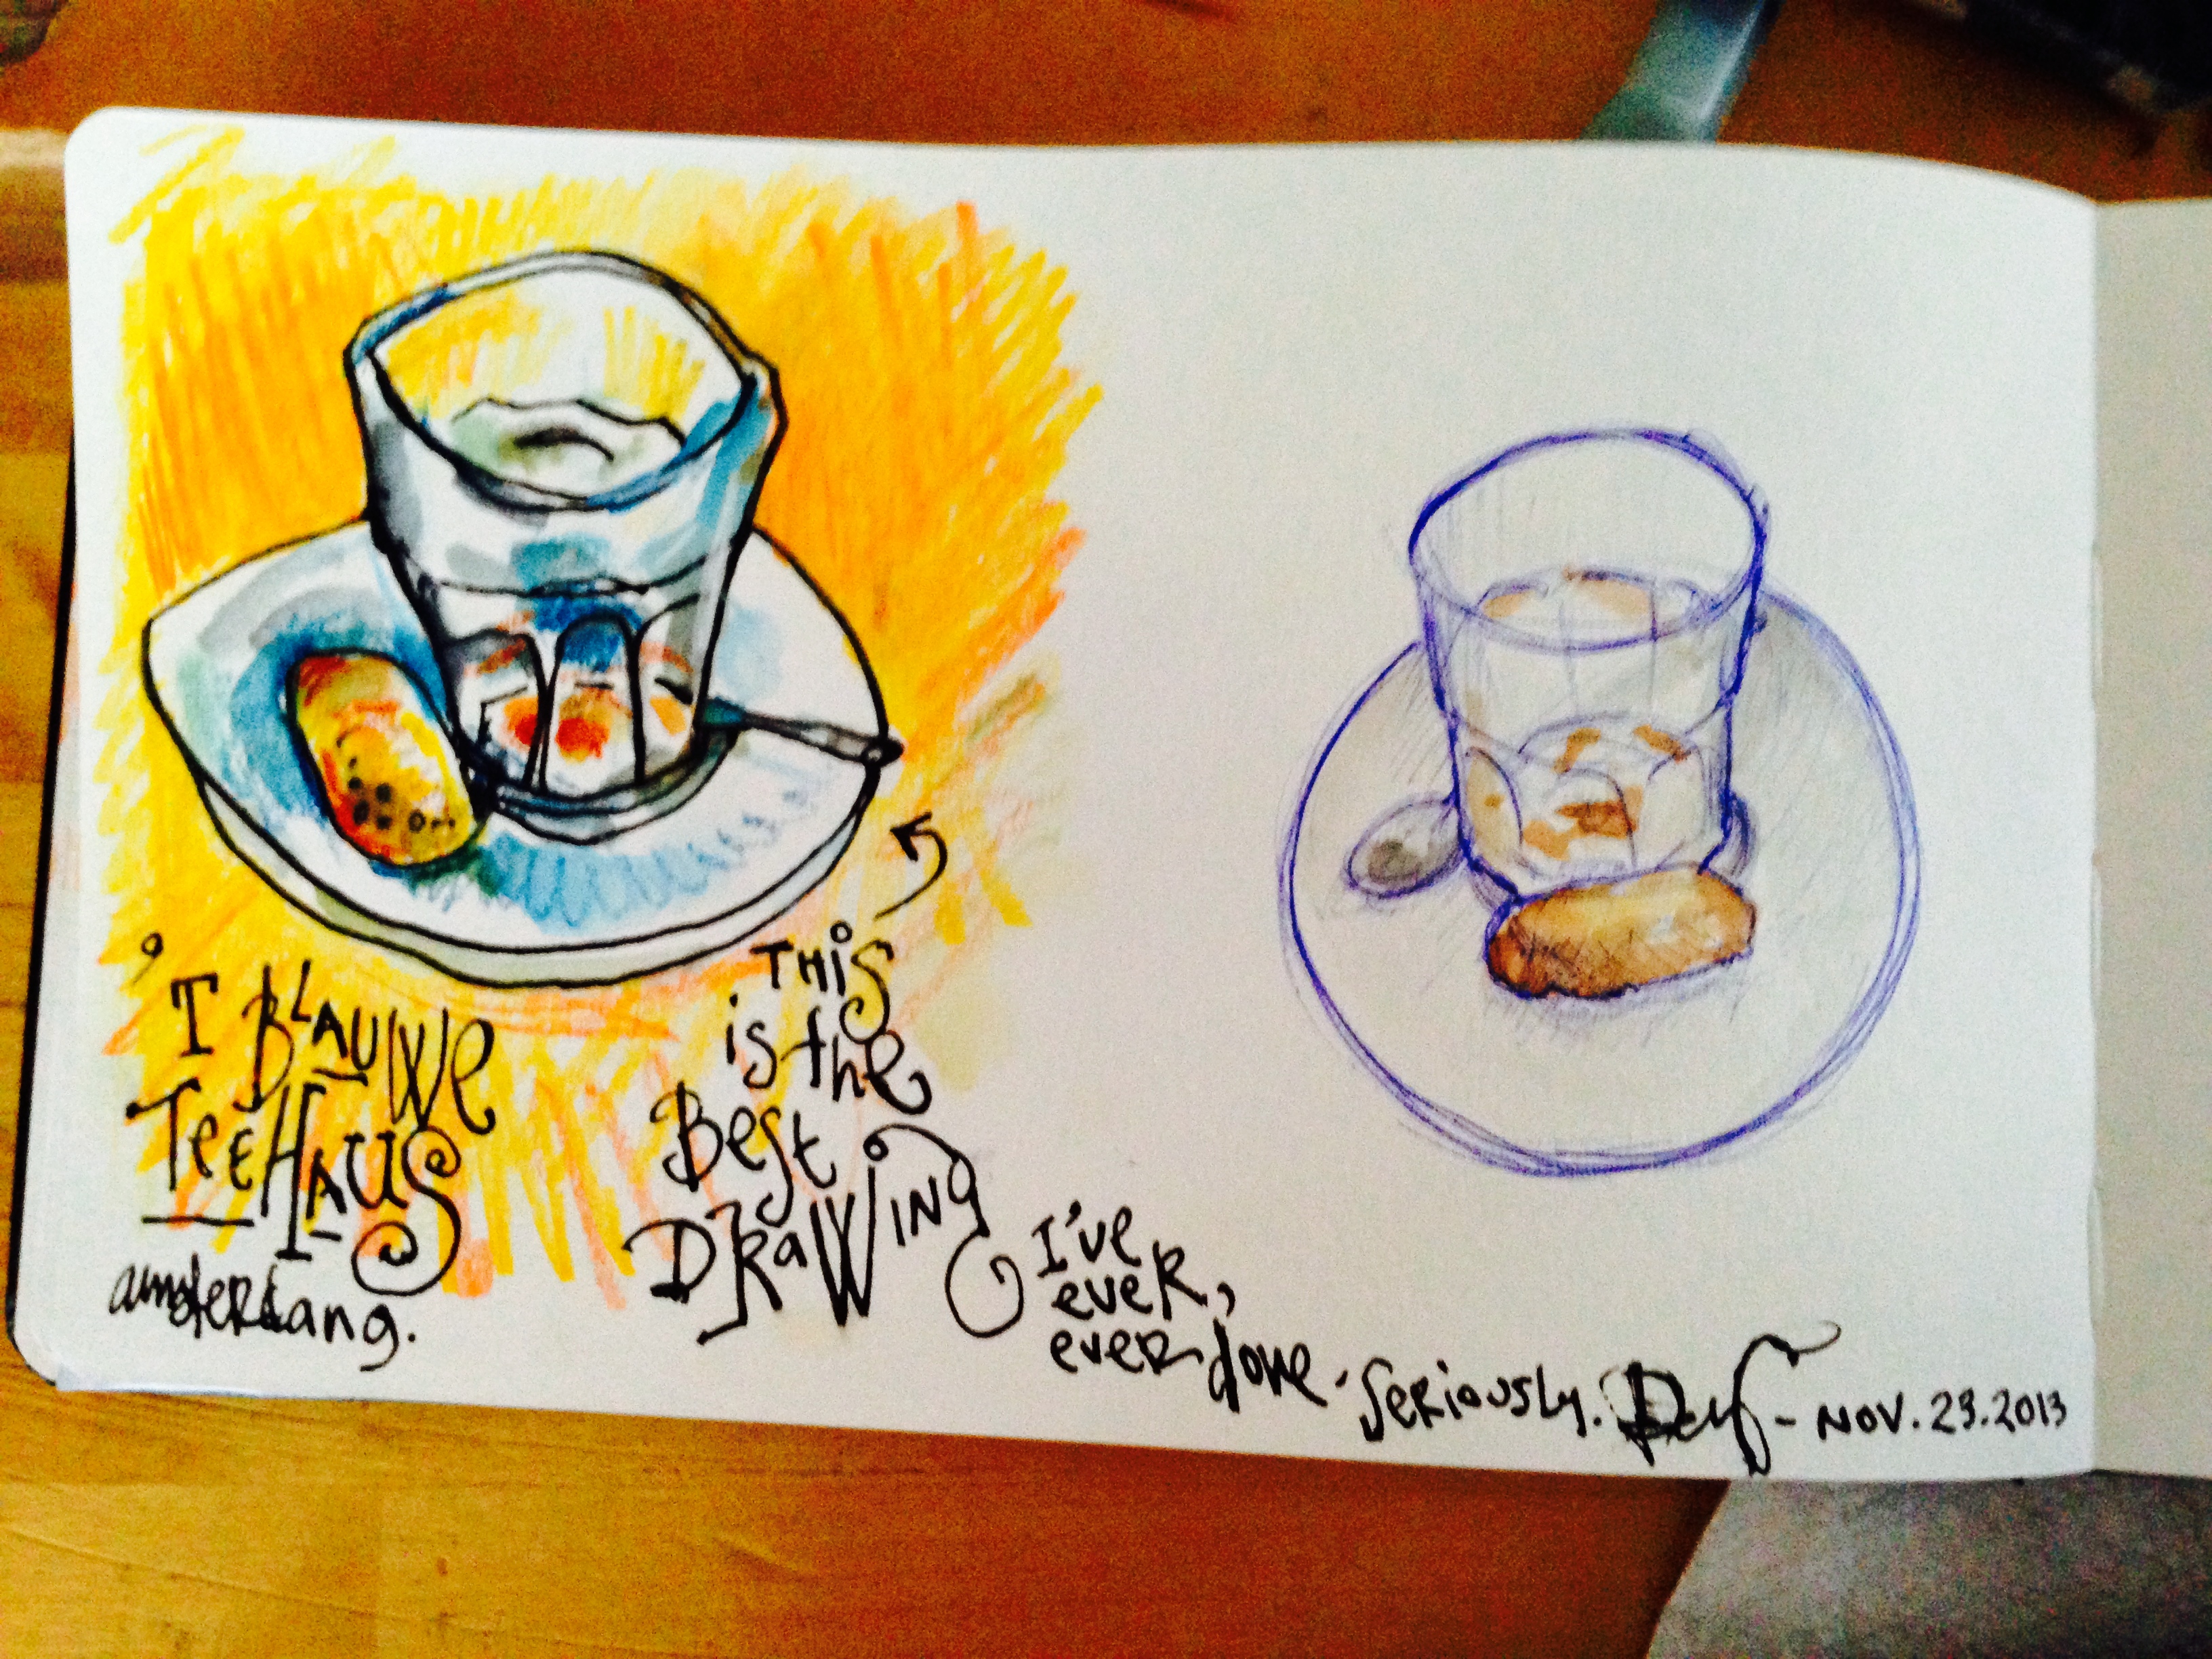 'T BLAUWE
TEEHAUS
amsterdang.
THIS
is the
Best
DRAWING
I've
ever,
ever done.
Seriously.
- NOV. 23. 2013